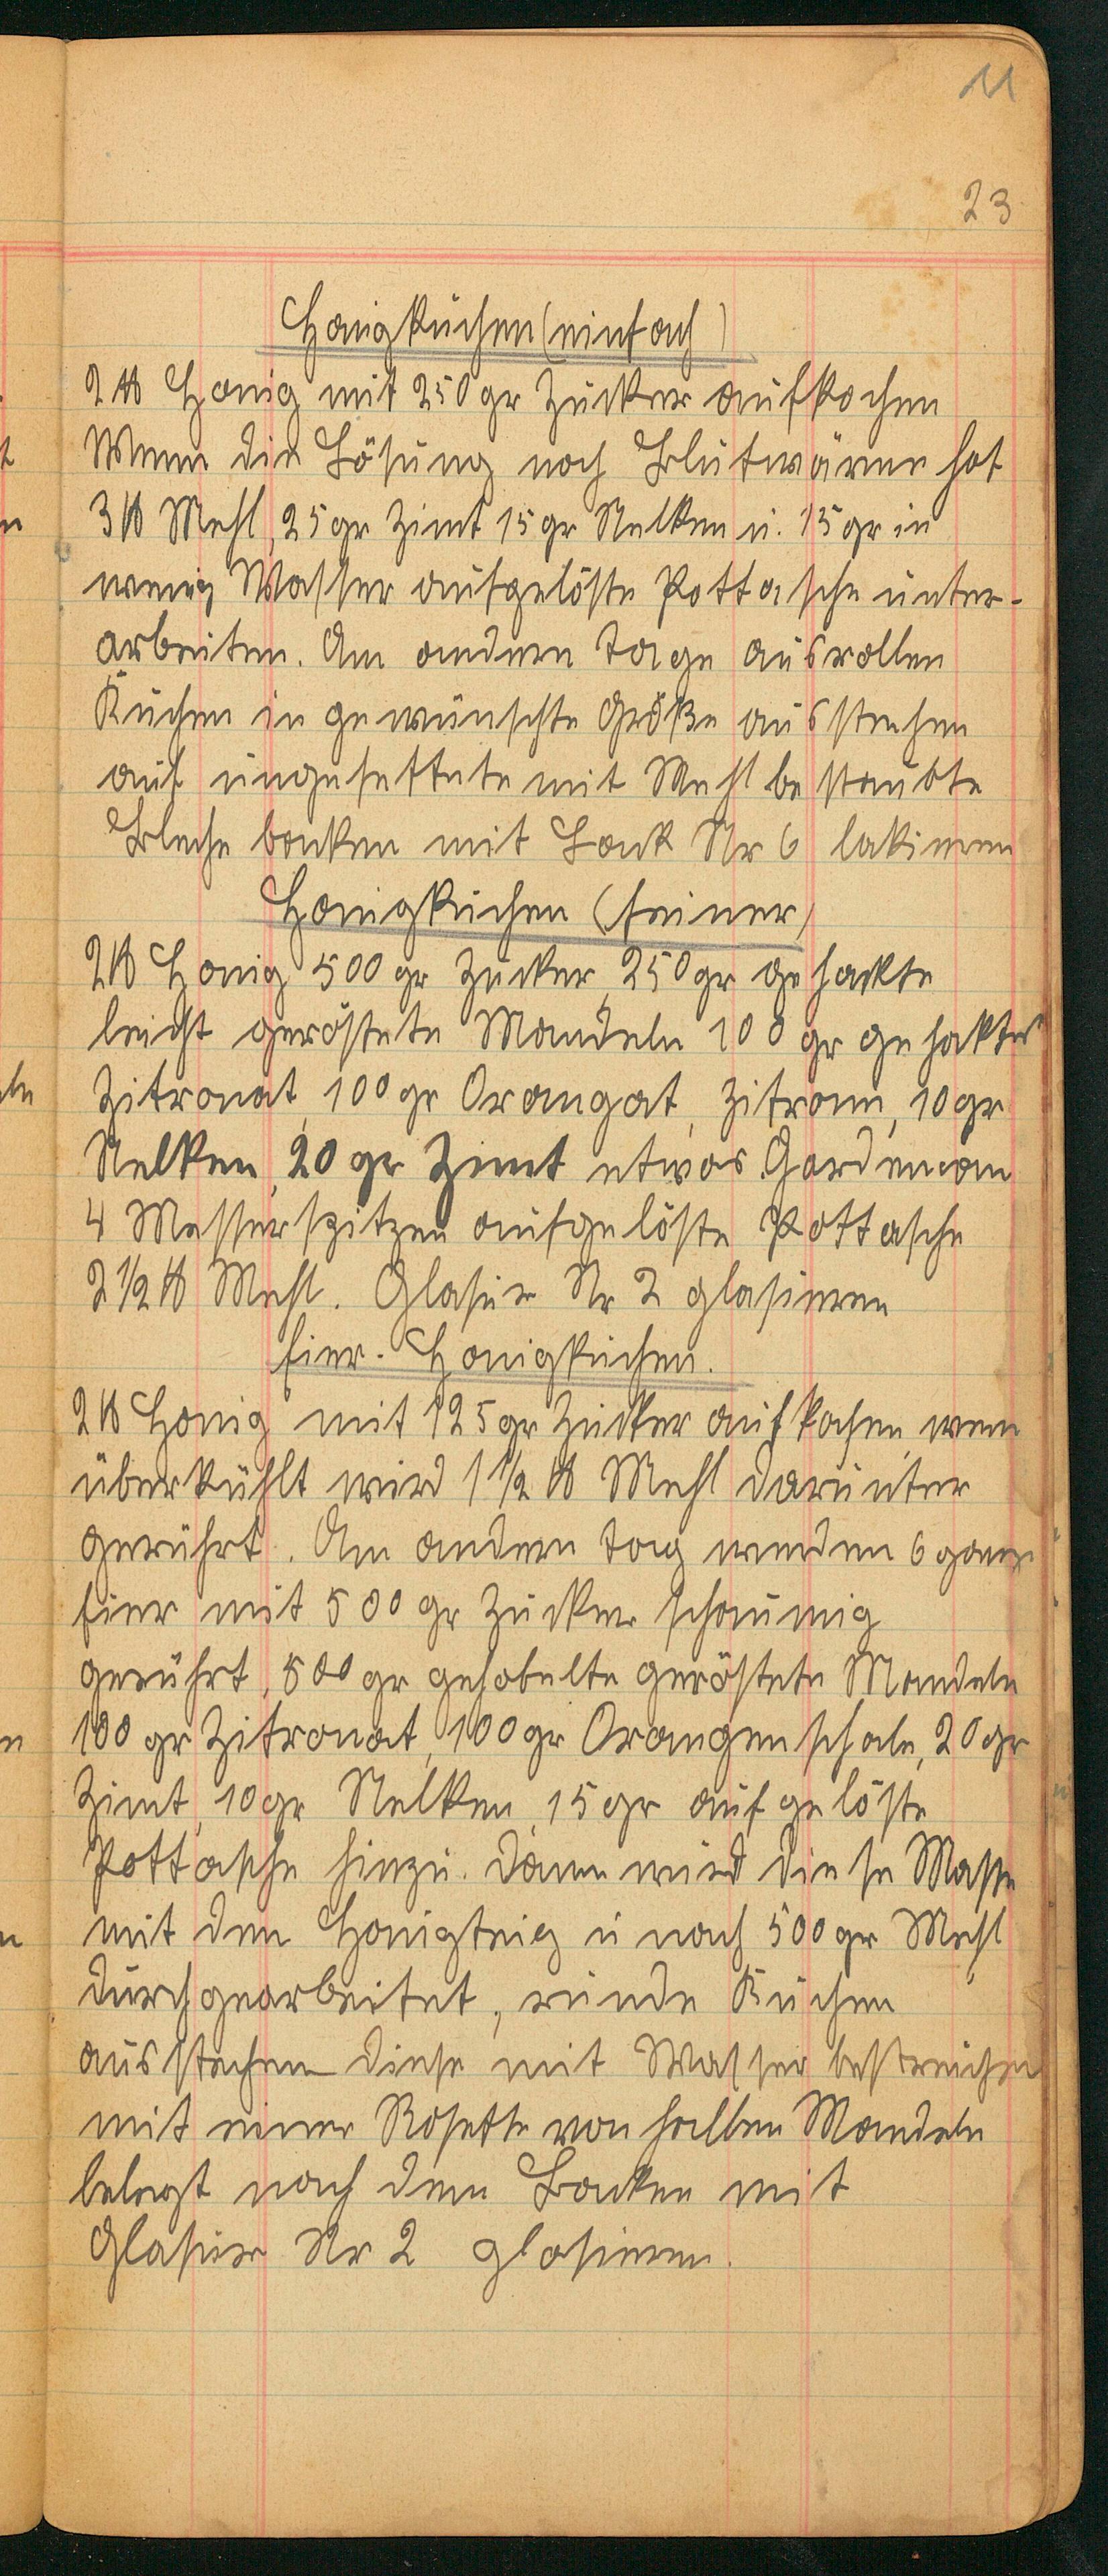 11
23
Honigkuchen (einfach)
2 ℔ Honig mit 250 gr Zucker aufkochen
Wenn die Lösung noch Blutwärme hat
3 ℔ Mehl, 25 gr Zimt 15 gr Nelken u. 15 gr in
wenig Wasser aufgelöste Pottasche unter-
arbeiten. Am andern Tage ausrollen
Kuchen in gewünschte Größe ausstechen
auf ungefettete mit Mehl bestaubte
Bleche backen mit Lack Nr 6 lakieren
Honigkuchen (feiner)
2 ℔ Honig 500 gr Zucker, 250 gr gehackte
leicht geröstete Mandeln 100 gr gehaktes
Zitronat, 100 gr Orangat, Zitrone, 10 gr
Nelken, 20 gr Zimt etwas Gardemom
4 Messerspitzen aufgelöste Pottasche
2 1/2 ℔ Mehl. Glasur Nr 2 glasieren
Eier-Honigkuchen.
2 ℔ Honig mit 125 gr Zucker aufkochen, wenn
überkühlt wird 1 1/2 ℔ Mehl darunter
gerührt. Am andern Tag werden 6 ganze
Eier mit 500 gr Zucker schaumig
gerührt, 500 gr gehobelte geröstete Mandeln
100 gr Zitronat, 100 gr Orangenschale, 20 gr
Zimt, 10 gr Nelken, 15 gr aufgelöste
Pottasche hinzu. Dann wird diese Masse
mit dem Honigteig u noch 500 gr Mehl
durchgearbeitet, runde Kuchen
ausstechen diese mit Wasser bestreichen
mit einer Rosette von halben Mandeln
belegt nach dem Backen mit
Glasur Nr 2 glasieren.